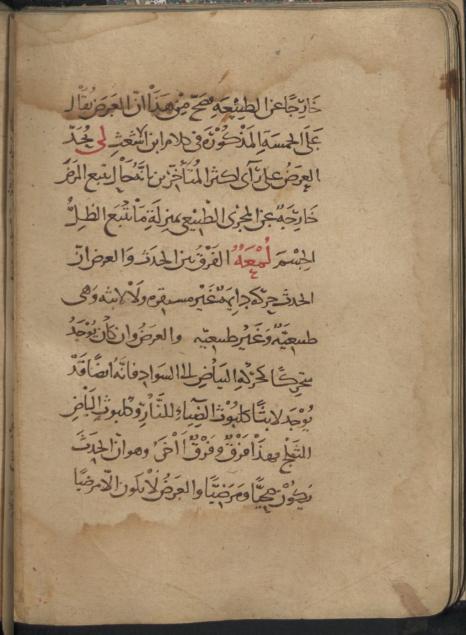 خارجًا عن الطبيعه فصح من هذا ان العرض يقال
على الخمسه المذكوره في كلام ابن الاشعث لى يُحَدّ
العرض على رأى اكثر المتأخرين بانه حال يتبع المرض
خارجه عن المجرى الطبيعى بمنزلة ما تتبع الظل
الجسم لُمْعَهٌ الفرق بين الحدث والعرض ان
الحدث حركه دايمه غير مستقره ولا لابثه وهى
طبيعيّه وغير طبيعيّه والعرض وان كان يوجد
متحركا كحركه البياض الى السواد فانه ايضًا قد
يوجد لابثا كلبوث الضياء للنار وكلبوث البياض
للثلج فهذا فرق وفرق آخر وهو ان الحدث
يكون صحيًّا ومرضيًّا والعرض لا يكون الا مرضيًا